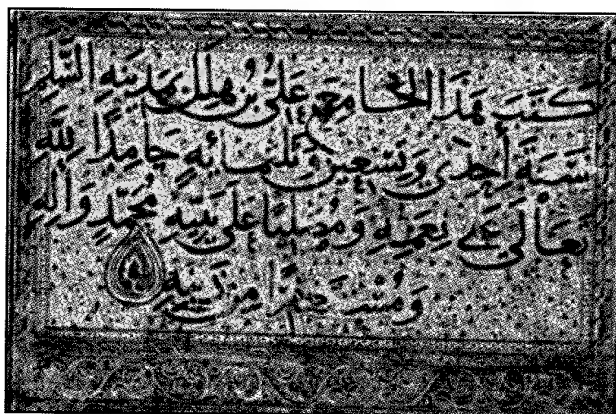 كَتَبَ هَذَا الجَامِعَ عَلِيُّ بْنُ هِلَالٍ بِمَدِينَةِ السَّلَمِ
سَنَةَ إِحْدَى وَتِسْعِينَ وَثَلثمِائَةٍ حَامِدًا لِلَّهِ
تَعَالَى عَلَى نِعَمِهِ وَمُصَلِّيًا عَلَى نَبِيِّهِ مُحَمَّدٍ وَآلِهِ
وَمُسْتَغْفِرًا مِنْ ذَنْبِهِ